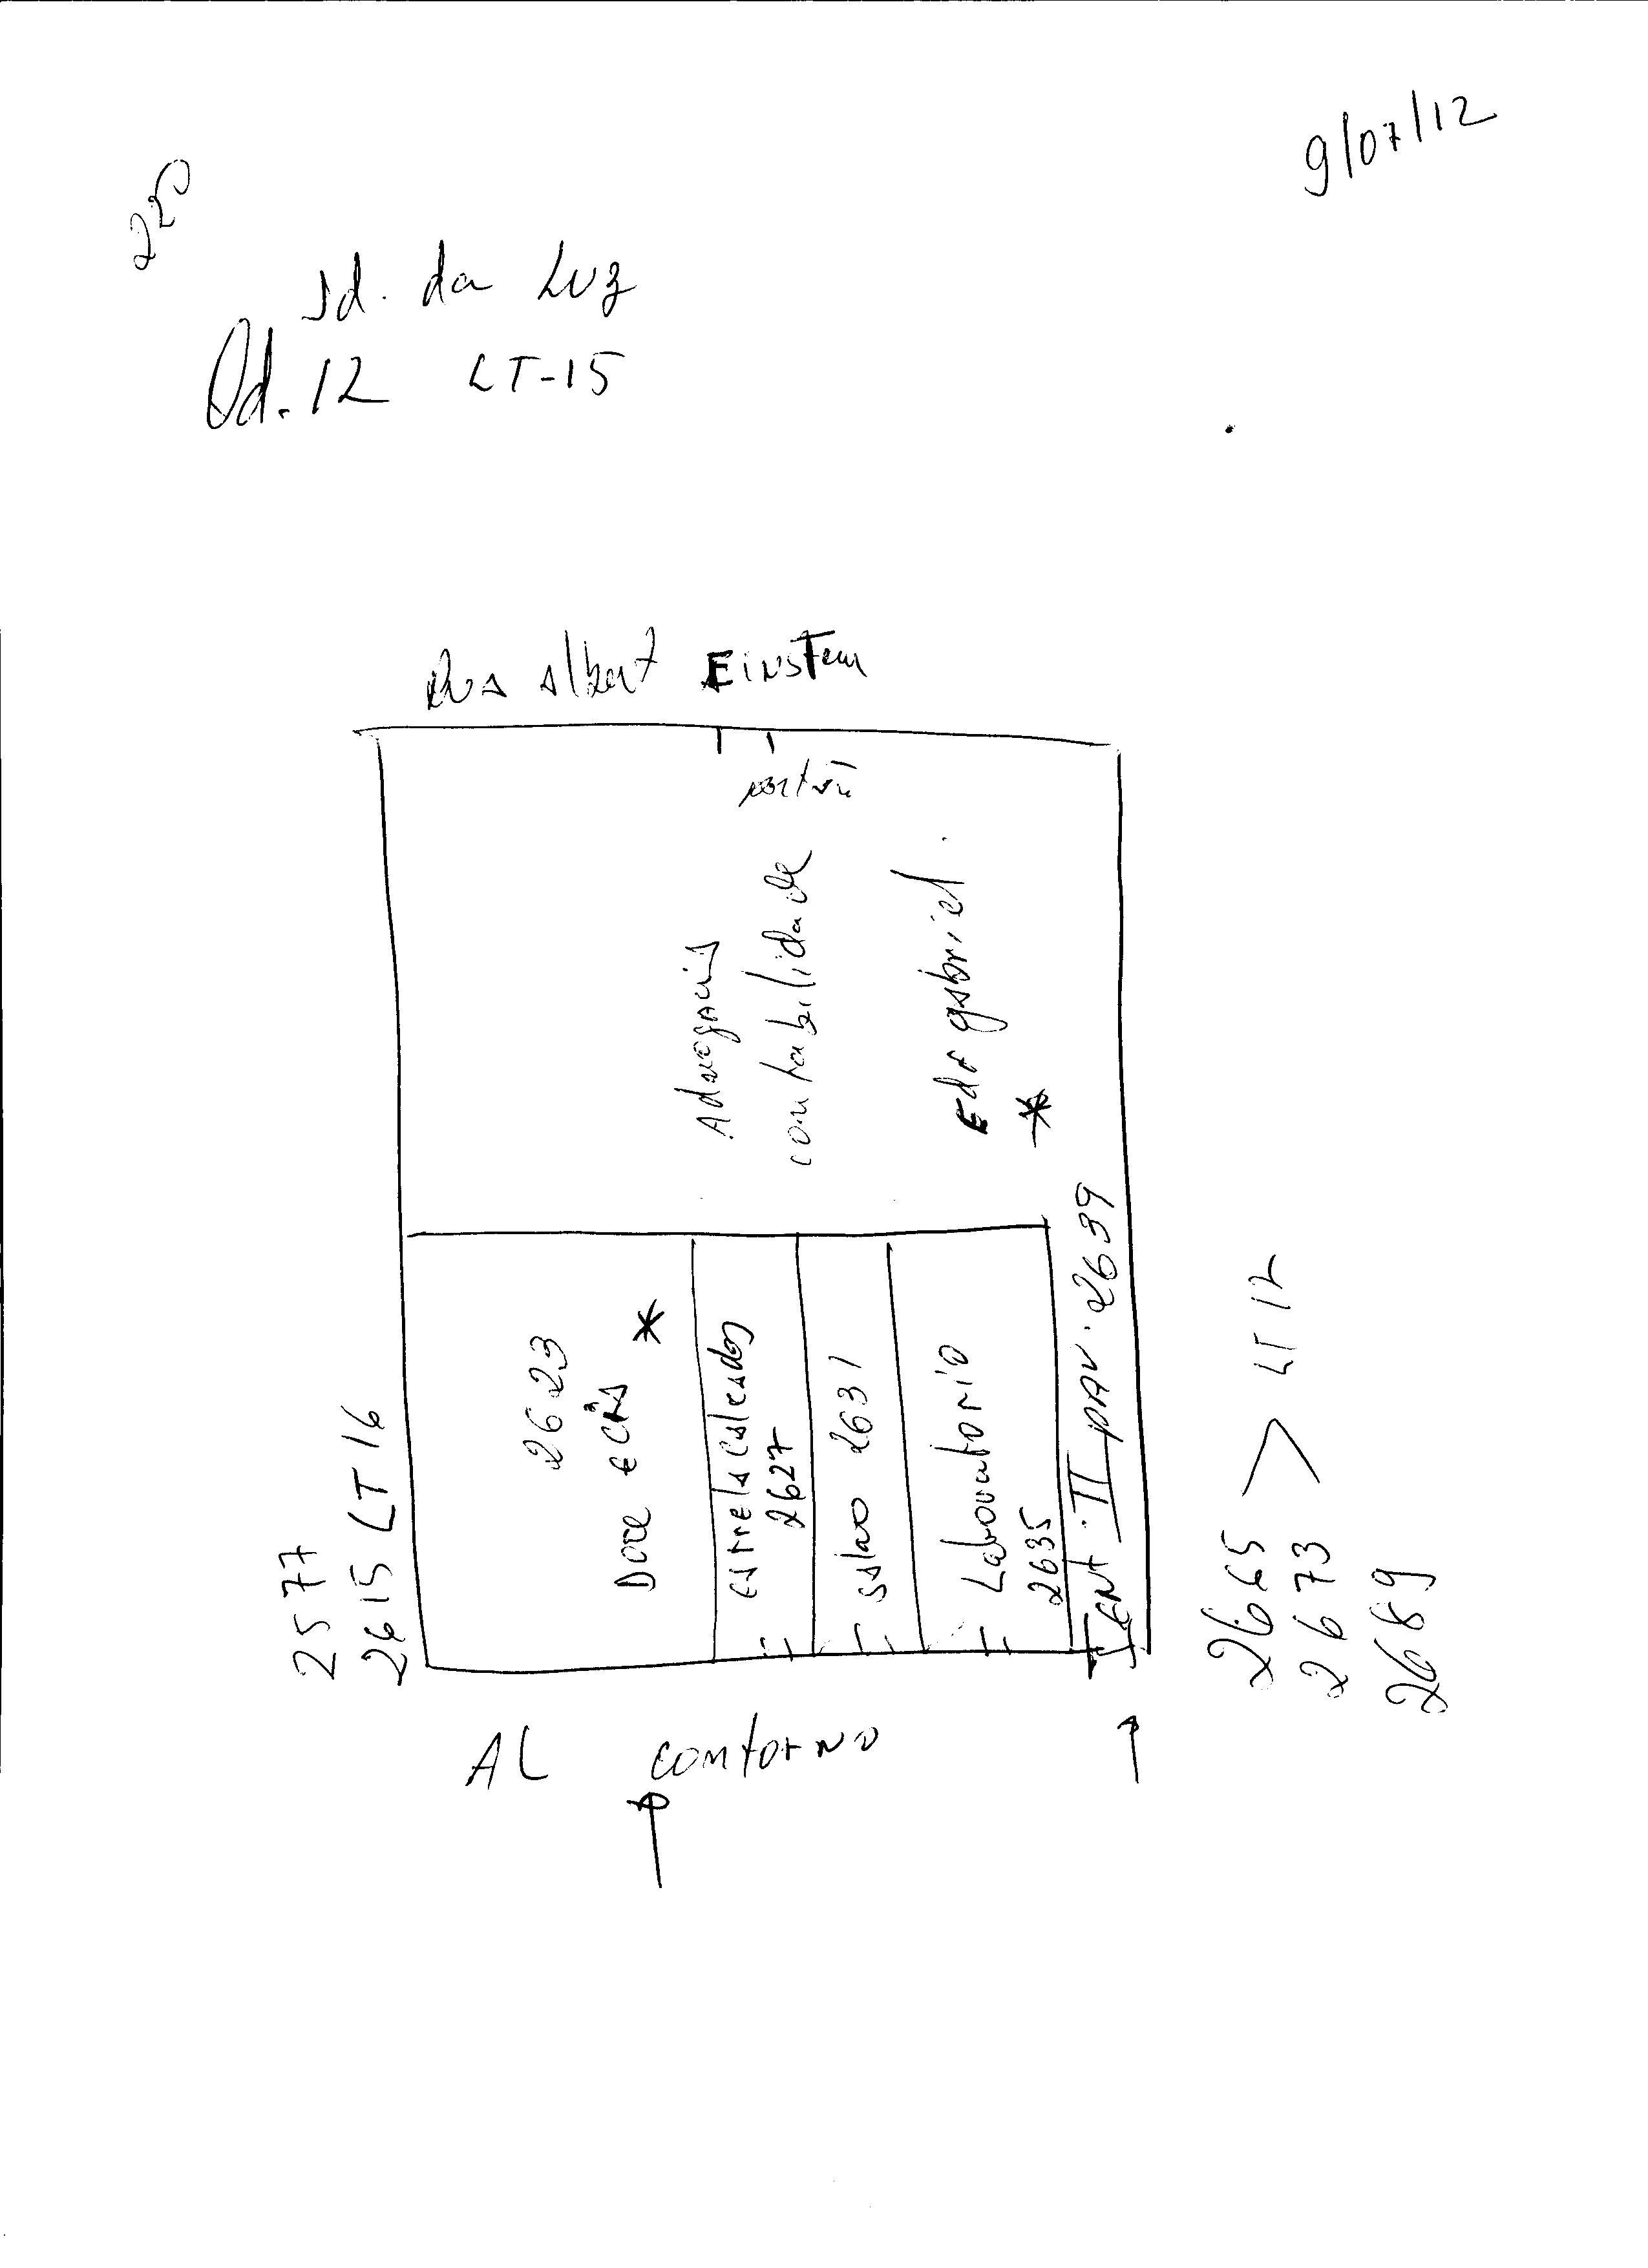 9/07/12
220
Jd. da Luz
Qd. 12 LT-15
Rua Albert Einstein
portão
Advogacia
contabilidade
Edf gabriel.
*
2623
Doce e Cia
*
estrela calcados
2627
salao 2631
Laboratorio
2635
ENt. II pav. 2639
2577
2615 LT 16
2665 > LT 12
2673
2689
AL contorno